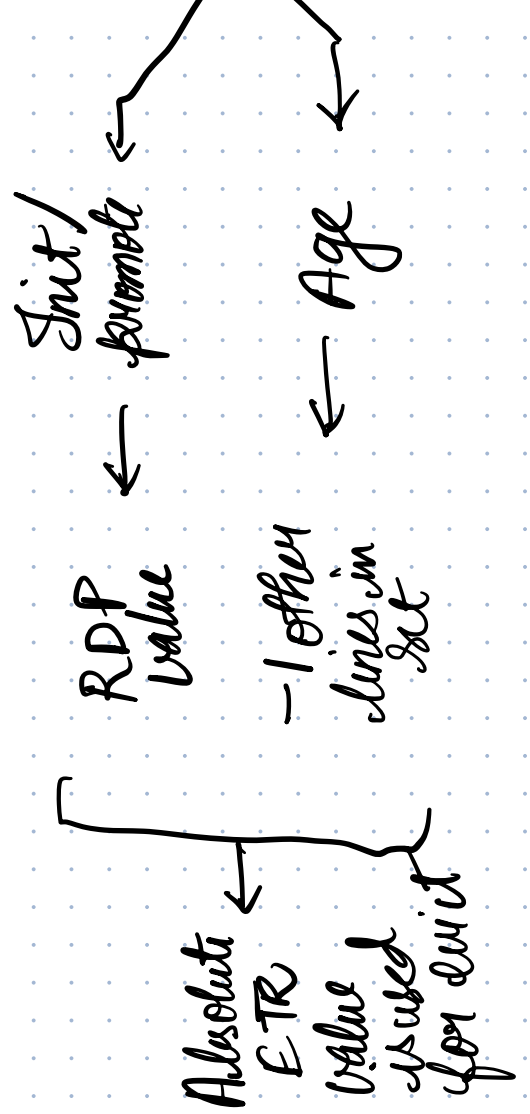 Init /
promote
Age
RDP
value
-1 other
lines in
set
Absolute
ETR
value
is used
for evict